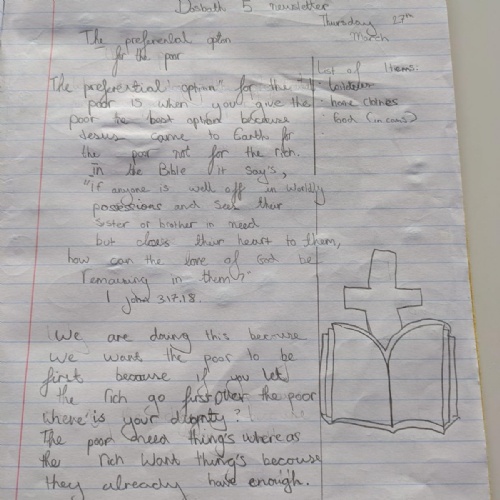 5 newsletter
Thursday 27th
March
The preferental option
for the poor
The preferential "option" for the
poor is when you give the
poor the best option because
Jesus came to Earth for
the poor not for the rich.
in the Bible it say's,
"if anyone is well off in worldly
possessions and sees thier
sister or brother in need
but closes thier heart to them,
how can the love of God be
remaining in them?"
1 john 3:17,18.
List of Items:
toiletries
home clothes
food (in cans)
We are doing this because
we want the poor to be
first because if you let
the rich go first over the poor
where is your dignity?
The poor need thing's where as
the rich want thing's because
they already have enough.